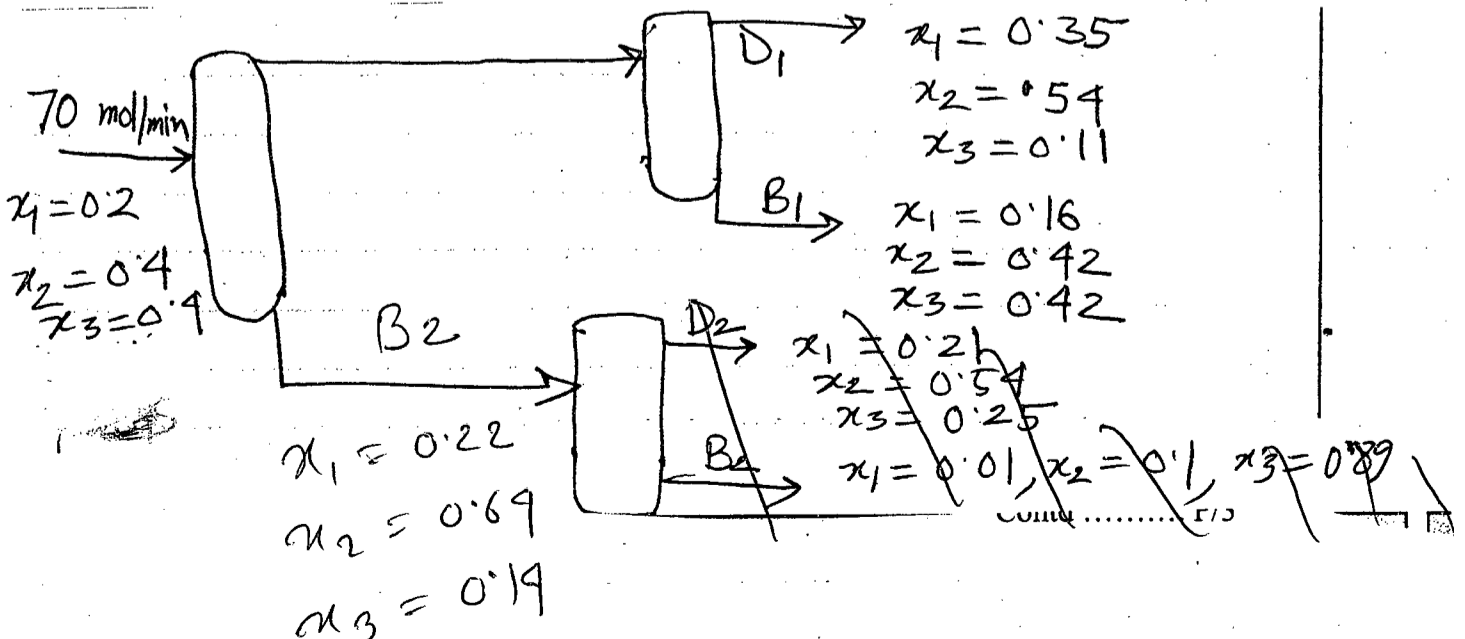 70 mol/min
x1 = 0.2
x2 = 0.4
x3 = 0.4
D1
x1 = 0.35
x2 = .54
x3 = 0.11
B1
x1 = 0.16
x2 = 0.42
x3 = 0.42
B2
x1 = 0.22
x2 = 0.64
x3 = 0.14
D2
x1 = 0.21
x2 = 0.54
x3 = 0.25
B2
x1 = 0.01, x2 = 0.1, x3 = 0.89